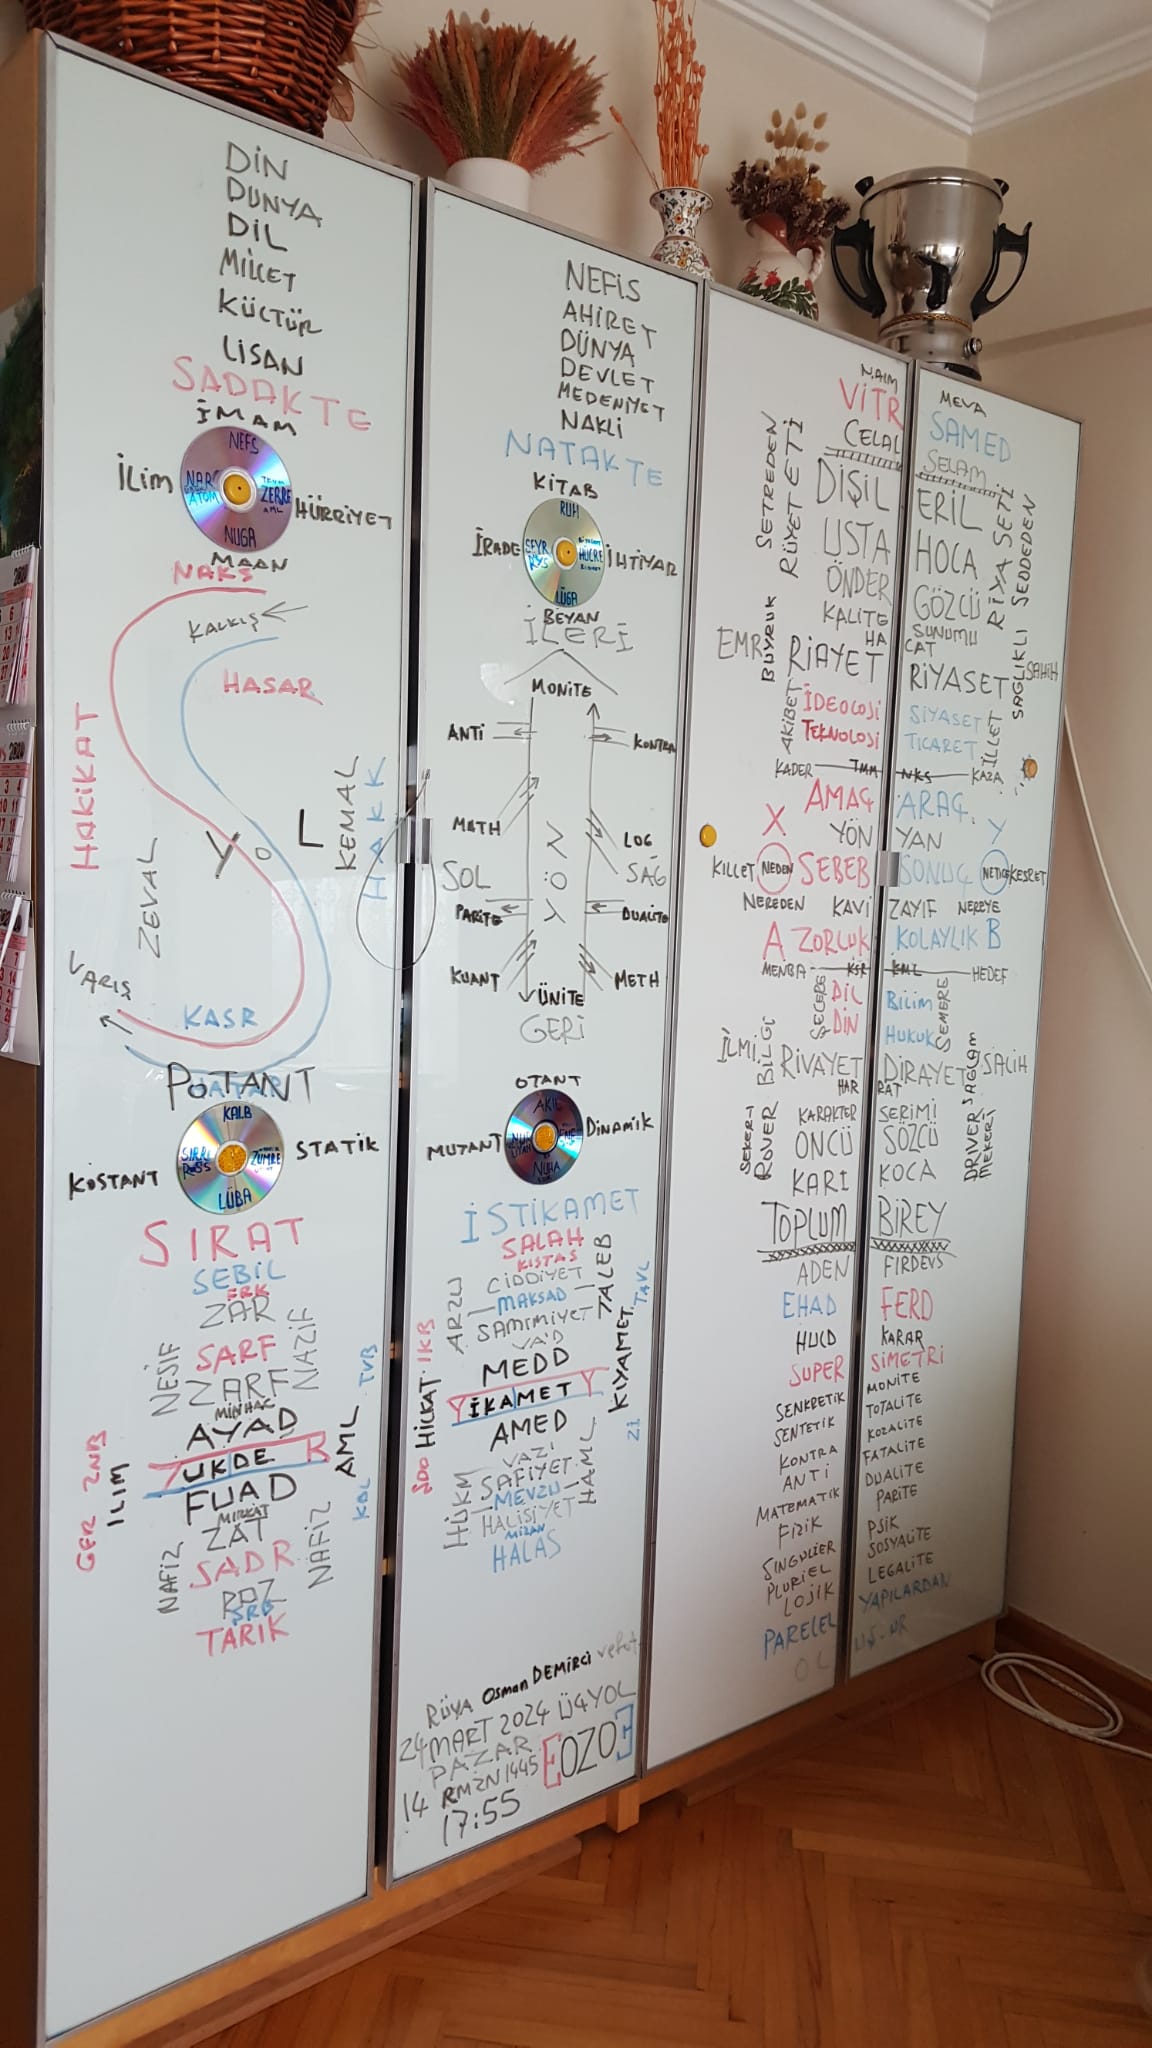 DİN
DÜNYA
DİL
MİLLET
KÜLTÜR
LİSAN
SADAKTE
İMAM
NEFS
İLİM
NAR
ATOM
ZERRE
AML
HÜRRİYET
NUGA
MAAN
NAKS
KALKIŞ
HASAR
HAKİKAT
KEMAL
HAKK
Y O L
ZEVAL
VARIŞ
KASR
POTANT
KALB
STATİK
SIRRI
ZÜMRE
KOSTANT
LÜBA
SIRAT
SEBİL
ERK
ZAR
NESİF
NAZİF
SARF
ZARF
TVB
MİNHAC
AYAD
UKDE
AML
GER ZNB
ILIM
FUAD
KBL
ZAT
NAFİZ
NAFİZ
SADR
TARIK
NEFİS
AHİRET
DÜNYA
DEVLET
MEDENİYET
NAKLİ
NATAKTE
KİTAB
RUH
İRADE
SEYR
HÜCRE
İHTİYAR
LÜGA
BEYAN
İLERİ
MONİTE
ANTİ
KONTRA
MATH
LOG
SOL
YÖN
SAĞ
PARİTE
DUALİTE
KUANT
METH
ÜNİTE
GERİ
OTANT
AKIL
MUTANT
DİNAMİK
NUHA
İSTİKAMET
SALAH
KISTAS
CİDDİYET
ARZU
TALEB
TAVL
MAKSAD
SAMİMİYET
VAİD
MEDD
HİLKAT
IKB
İKAMET
KIYAMET
AMED
VAZİ
SAFİYET
HÜKM
HAML
MEVZU
HALİSİYET
MİZAN
HALAS
RÜYA Osman DEMİRCİ vefat
24 MART 2024 Ü4YOL
PAZAR
EOZOE
14 RMZN 1445
17:55
N.AIM
VİTR
CELAL
SETREDEN
RÜYET ETİ
DİŞİL
USTA
ÖNDER
KALİTE
HA
EMR
BUYRUK
RİAYET
AKİBET
İDEOLOJİ
TEKNOLOJİ
KADER
TMM
AMAÇ
X
YÖN
KILLET
NEDEN
SEBEB
NEREDEN
KAVİ
A ZORLUK
MENBA
KSR
ŞECERE
DİL
DİN
İLMİ
BİLGİ
RİVAYET
HAR
KARAKTER
ROVER
ÖNCÜ
KARI
TOPLUM
ADEN
EHAD
HULD
SUPER
SENKRETİK
SENTETİK
KONTRA
ANTİ
MATEMATİK
FİZİK
SINGULİER
PLURİEL
LOJİK
PARELEL
OL
MEVA
SAMED
SELAM
RİYA SETİ
SEDDEDEN
ERİL
HOCA
GÖZCÜ
SUNUMU
CAT
RİYASET
SAĞLIKLI
SAHİH
SİYASET
TİCARET
İLLET
NKS
KAZA
ARAÇ
YAN
Y
SONUÇ
NETİCE
KESRET
ZAYIF
NEREYE
KOLAYLIK B
KML
HEDEF
BİLİM
SEMERE
HUKUK
DİRAYET
SAĞLAM
SALİH
RAT
SERİMİ
SÖZCÜ
DRİVER
MEKERİ
KOCA
BİREY
FİRDEVS
FERD
KARAR
SİMETRİ
MONİTE
TOTALİTE
KOZALİTE
FATALİTE
DUALİTE
PARİTE
PSİK
SOSYALİTE
LEGALİTE
YAPILARDAN